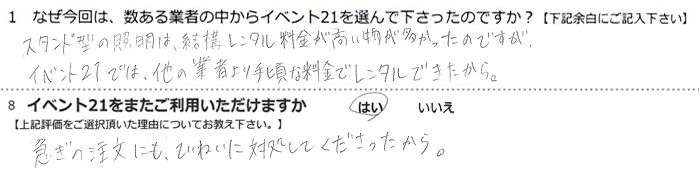 1 なぜ今回は、数ある業者の中からイベント21を選んで下さったのですか？【下記余白にご記入下さい】
スタンド型の照明は、結構レンタル料金が高い物が多かったのですが、
イベント21では、他の業者より手頃な料金でレンタルできたから。
8 イベント21をまたご利用いただけますか はい いいえ
【上記評価をご選択頂いた理由についてお教え下さい。】
急ぎの注文にも、ていねいに対処してくださったから。